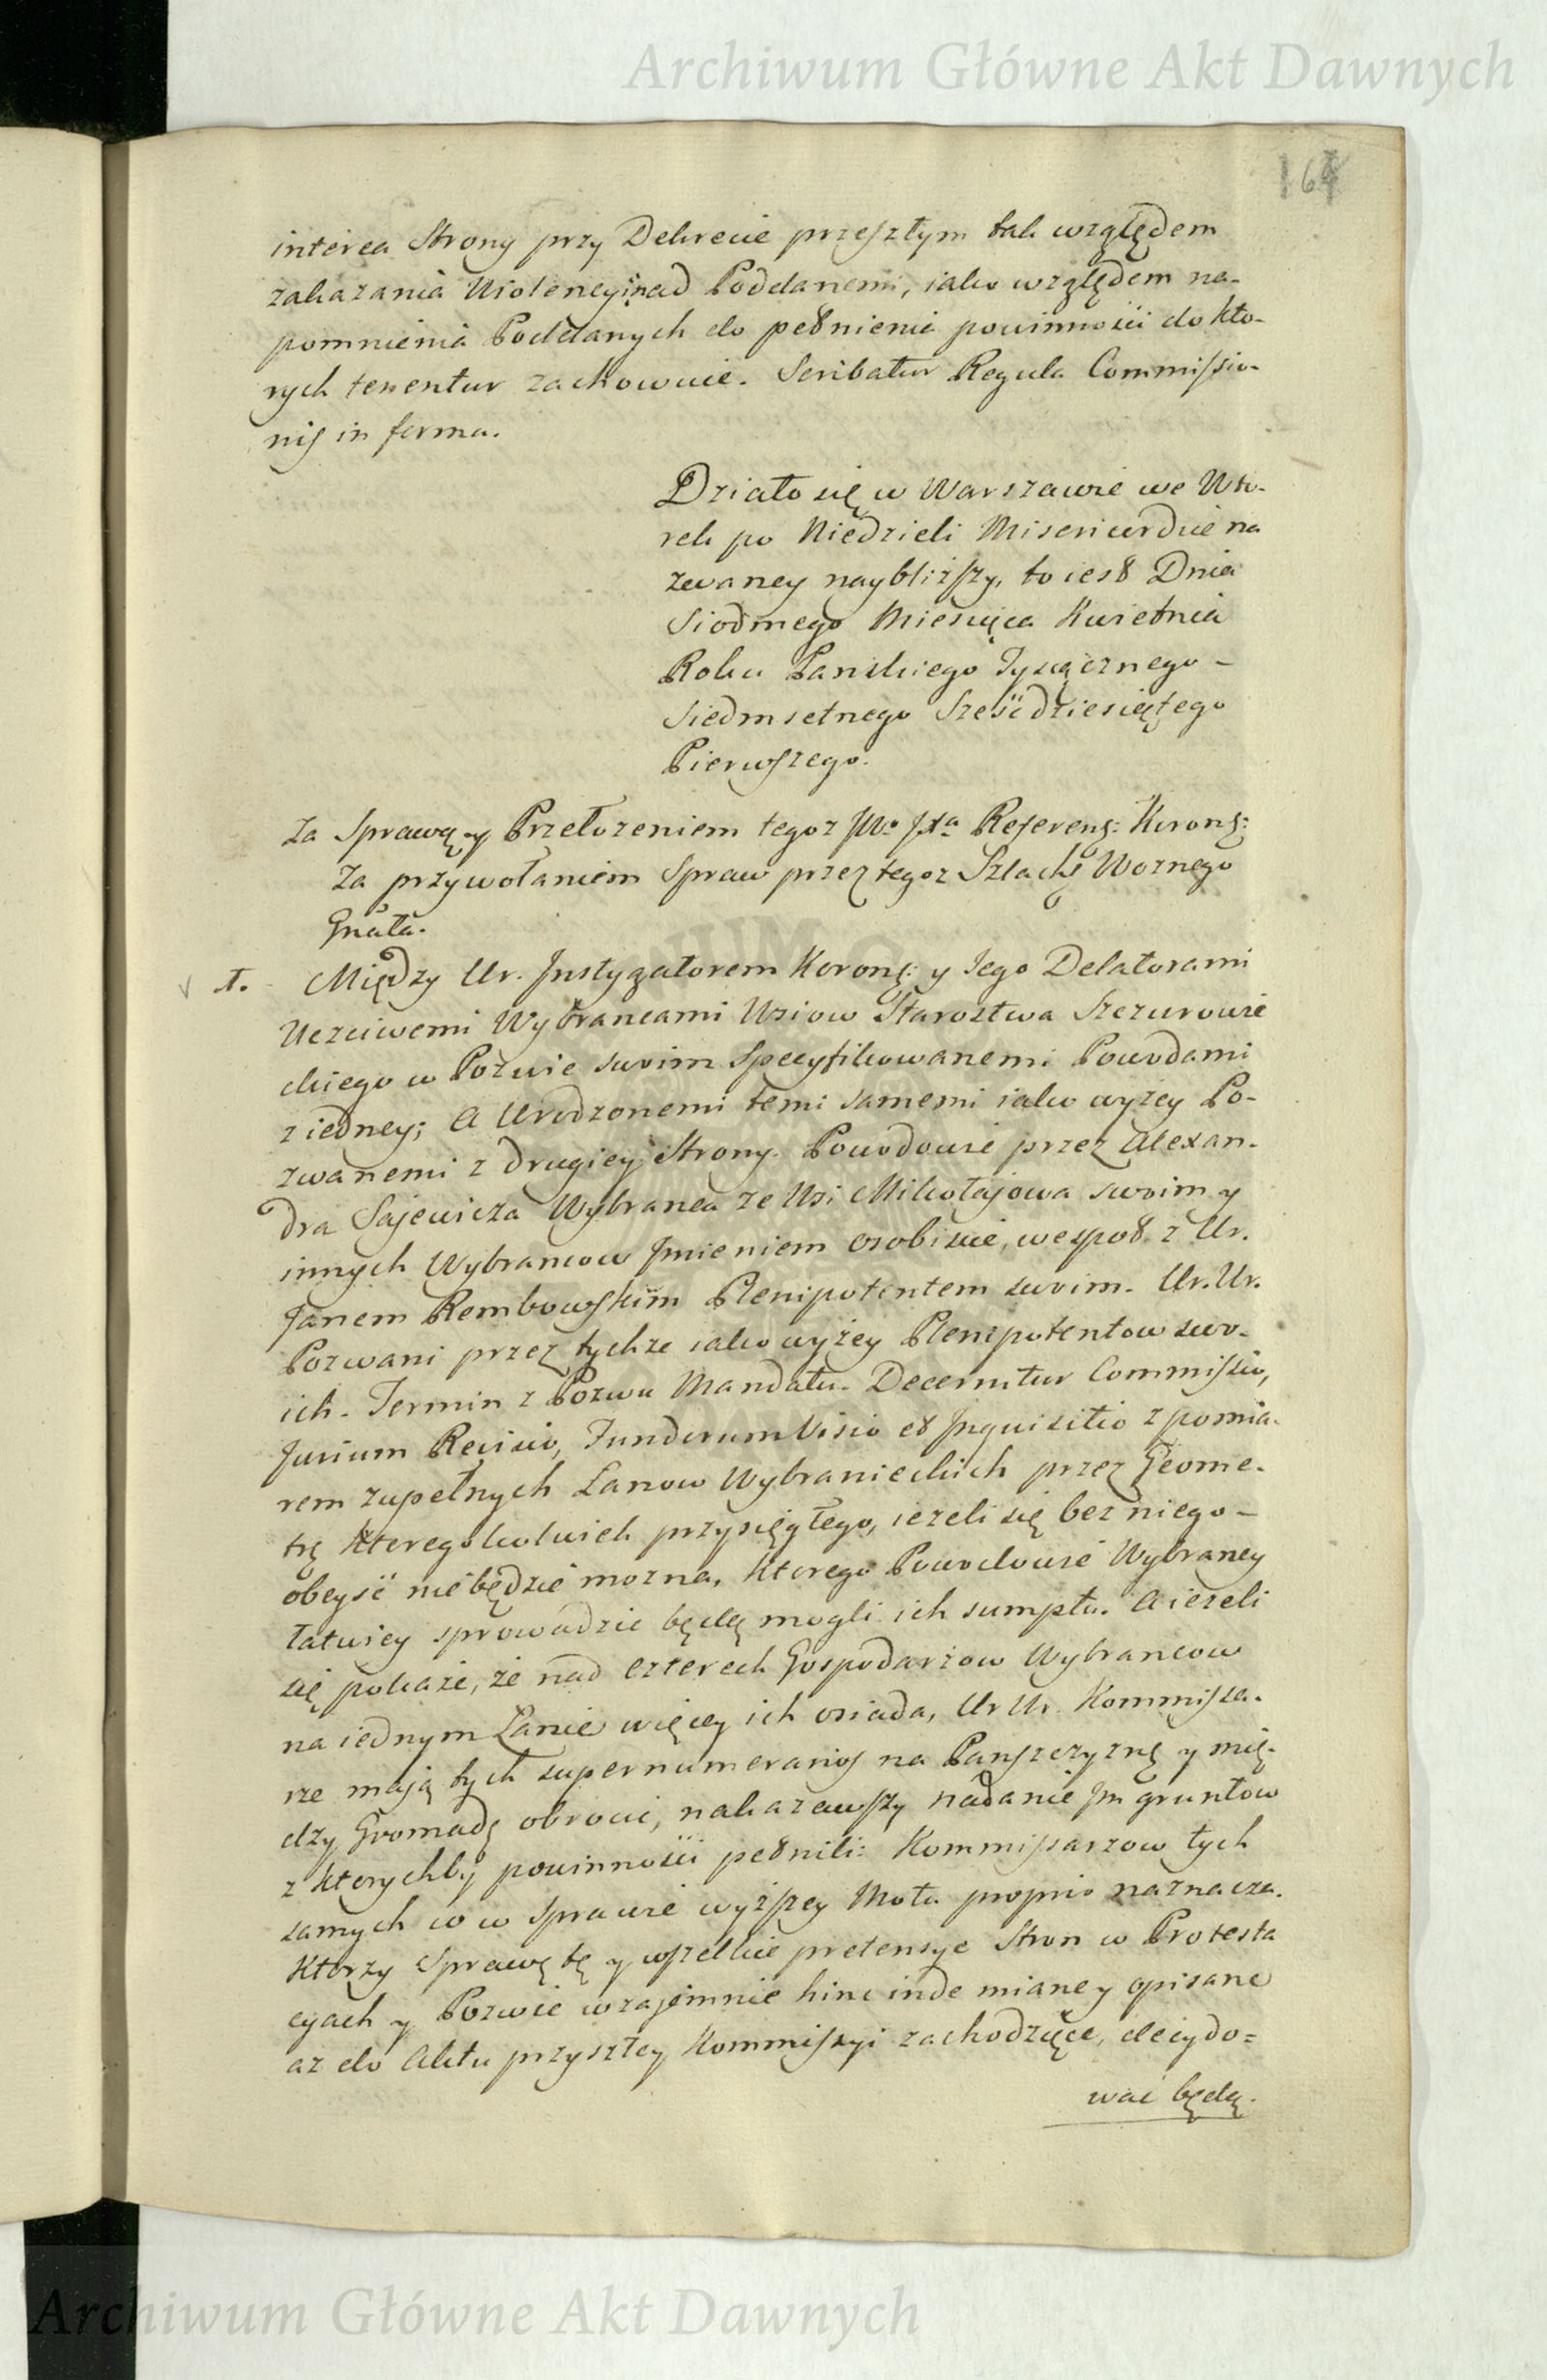 Archiwum Główne Akt Dawnych
164
interea Strony przy Dekrecie przeszłym tak względem
zakazania Violencyi nad Poddanemi, iako względem na-
pomnienia Poddanych do pełnienia powinności do kto-
rych tenentur zachowuie. Scribatur Regula Commissio-
nis in forma.
Działo się w Warszawie we Wto-
rek po Niedzieli Misericordie na
zwaney naybliższy, to iest Dnia
Siodmego Miesiąca Kwietnia
Roku Panskiego Tysiącznego -
Siedmsetnego Sześćdziesiętego
Pierwszego.
Za Sprawą y Przełożeniem tegoż JWo JXa Referens: Koronġ:
Za przywołaniem Spraw przez tegoż Szlach: Woznego
Gnata.
1. Między Ur. Instygatorem Koronġ: y Jego Delatorami
Uczciwemi Wybrancami Wsiow Starostwa Szczurowie
ckiego w Pozwie swoim Specyfikowanemi Powodami
z iedney; a Urodzonemi temi samemi iako wyżey Po-
zwanemi z drugiey Strony. Powodowie przez Alexan-
dra Sajewicza Wybranca ze Wsi Mikołajowa swoim y
innych Wybrancow Jmieniem osobiście, wespoł z Ur.
Janem Rembowskim Plenipotentem swoim. Ur. Ur.
Pozwani przez tychże iako wyżey Plenipotentow swo-
ich. Termin z Pozwu Mandatu. Decernitur Commissio,
Jurium Revisio, Fundorum Visio et Jnquisitio z pomia-
rem zupełnych Łanow Wybranieckich przez Geome-
trę ktoregokolwiek przysięgłego, ieżeli się bez niego -
obeyść nie będzie można, ktorego Powodowie Wybrancy
łatwiey sprowadzić będą mogli ich sumptu. A ieżeli
się pokaże, że nad czterech Gospodarzow Wybrancow
na iednym Łanie więcey ich osiada, Ur Ur. Kommissa-
rze mają tych supernumerarios na Panszczyznę y mię-
dzy Gromadę obrocić, nakazawszy nadanie Jm gruntow
z ktorychby powinności pełnili: Kommissarzow tych
samych co w Sprawie wyższey Motu proprio naznacza.
Ktorzy Sprawę tę y wszelkie pretensye Stron w Protesta
cyach y Pozwie wzajemnie hinc inde miane y opisane
aż do Aktu przyszłey Kommissyi zachodzące, decydo=
wać będą.
Archiwum Główne Akt Dawnych